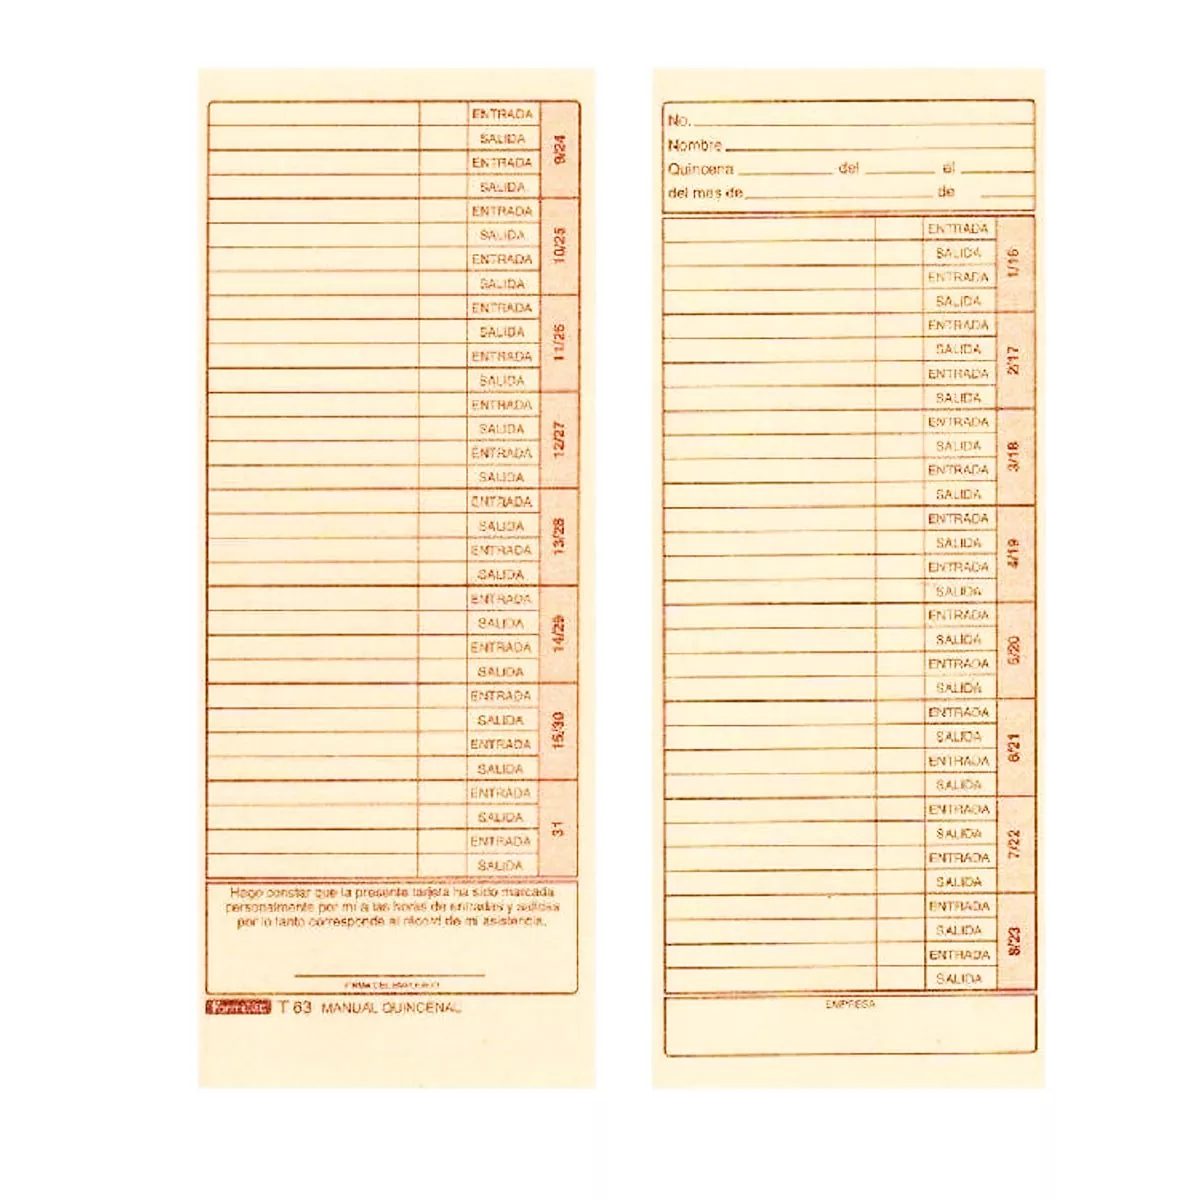 ENTRADA
SALIDA
ENTRADA
SALIDA
9/24
ENTRADA
SALIDA
ENTRADA
SALIDA
10/25
ENTRADA
SALIDA
ENTRADA
SALIDA
11/26
ENTRADA
SALIDA
ENTRADA
SALIDA
12/27
ENTRADA
SALIDA
ENTRADA
SALIDA
13/28
ENTRADA
SALIDA
ENTRADA
SALIDA
14/29
ENTRADA
SALIDA
ENTRADA
SALIDA
15/30
ENTRADA
SALIDA
ENTRADA
SALIDA
31
Hago constar que la presente tarjeta ha sido marcada
personalmente por mi a las horas de entradas y salidas
por lo tanto corresponde al récord de mi asistencia.
FIRMA DEL EMPLEADO
T 63 MANUAL QUINCENAL
No.
Nombre
Quincena del al
del mes de de
ENTRADA
SALIDA
ENTRADA
SALIDA
1/16
ENTRADA
SALIDA
ENTRADA
SALIDA
2/17
ENTRADA
SALIDA
ENTRADA
SALIDA
3/18
ENTRADA
SALIDA
ENTRADA
SALIDA
4/19
ENTRADA
SALIDA
ENTRADA
SALIDA
5/20
ENTRADA
SALIDA
ENTRADA
SALIDA
6/21
ENTRADA
SALIDA
ENTRADA
SALIDA
7/22
ENTRADA
SALIDA
ENTRADA
SALIDA
8/23
EMPRESA